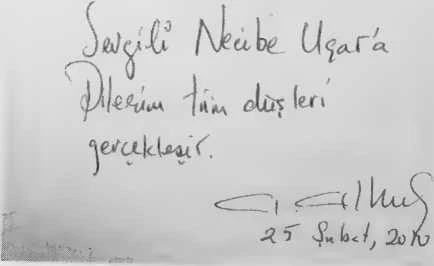 Sevgili Necibe Uçar'a
Dilerim tüm düşleri
gerçekleşir.
25 Şubat, 2010